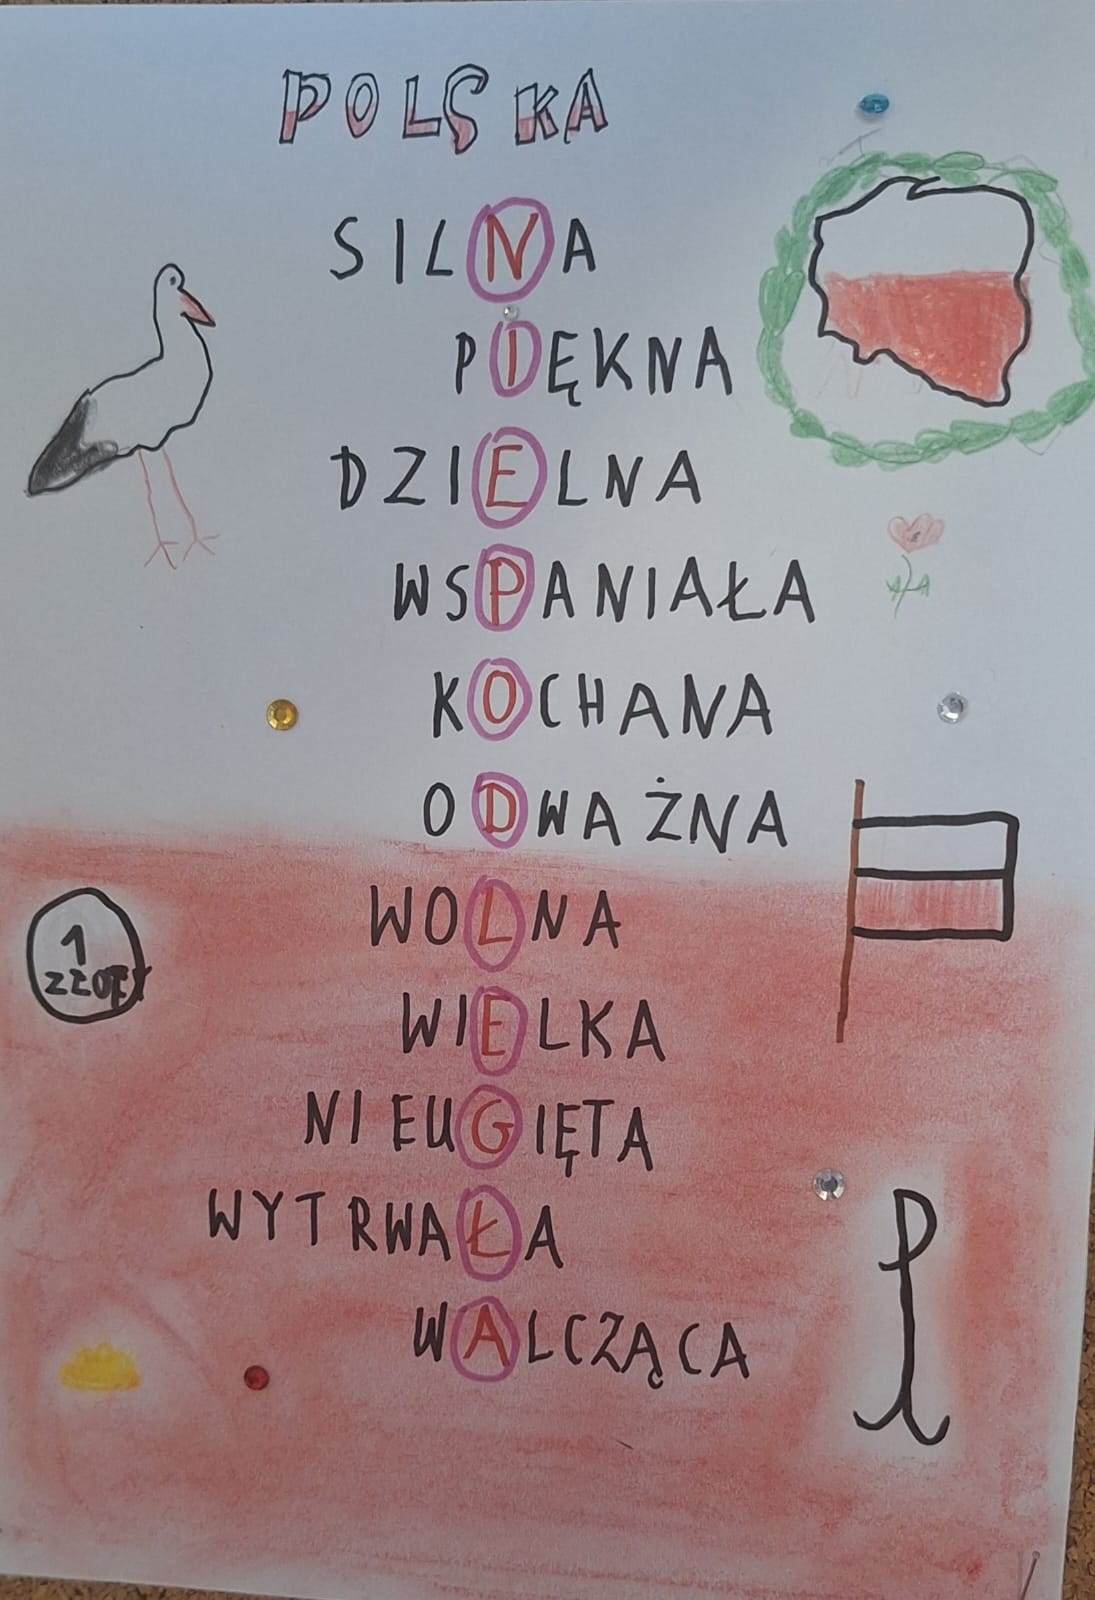 POLSKA
SILNA
PIĘKNA
DZIELNA
WSPANIAŁA
KOCHANA
ODWAŻNA
WOLNA
1
WIELKA
NIEUGIĘTA
WYTRWAŁA
WALCZĄCA